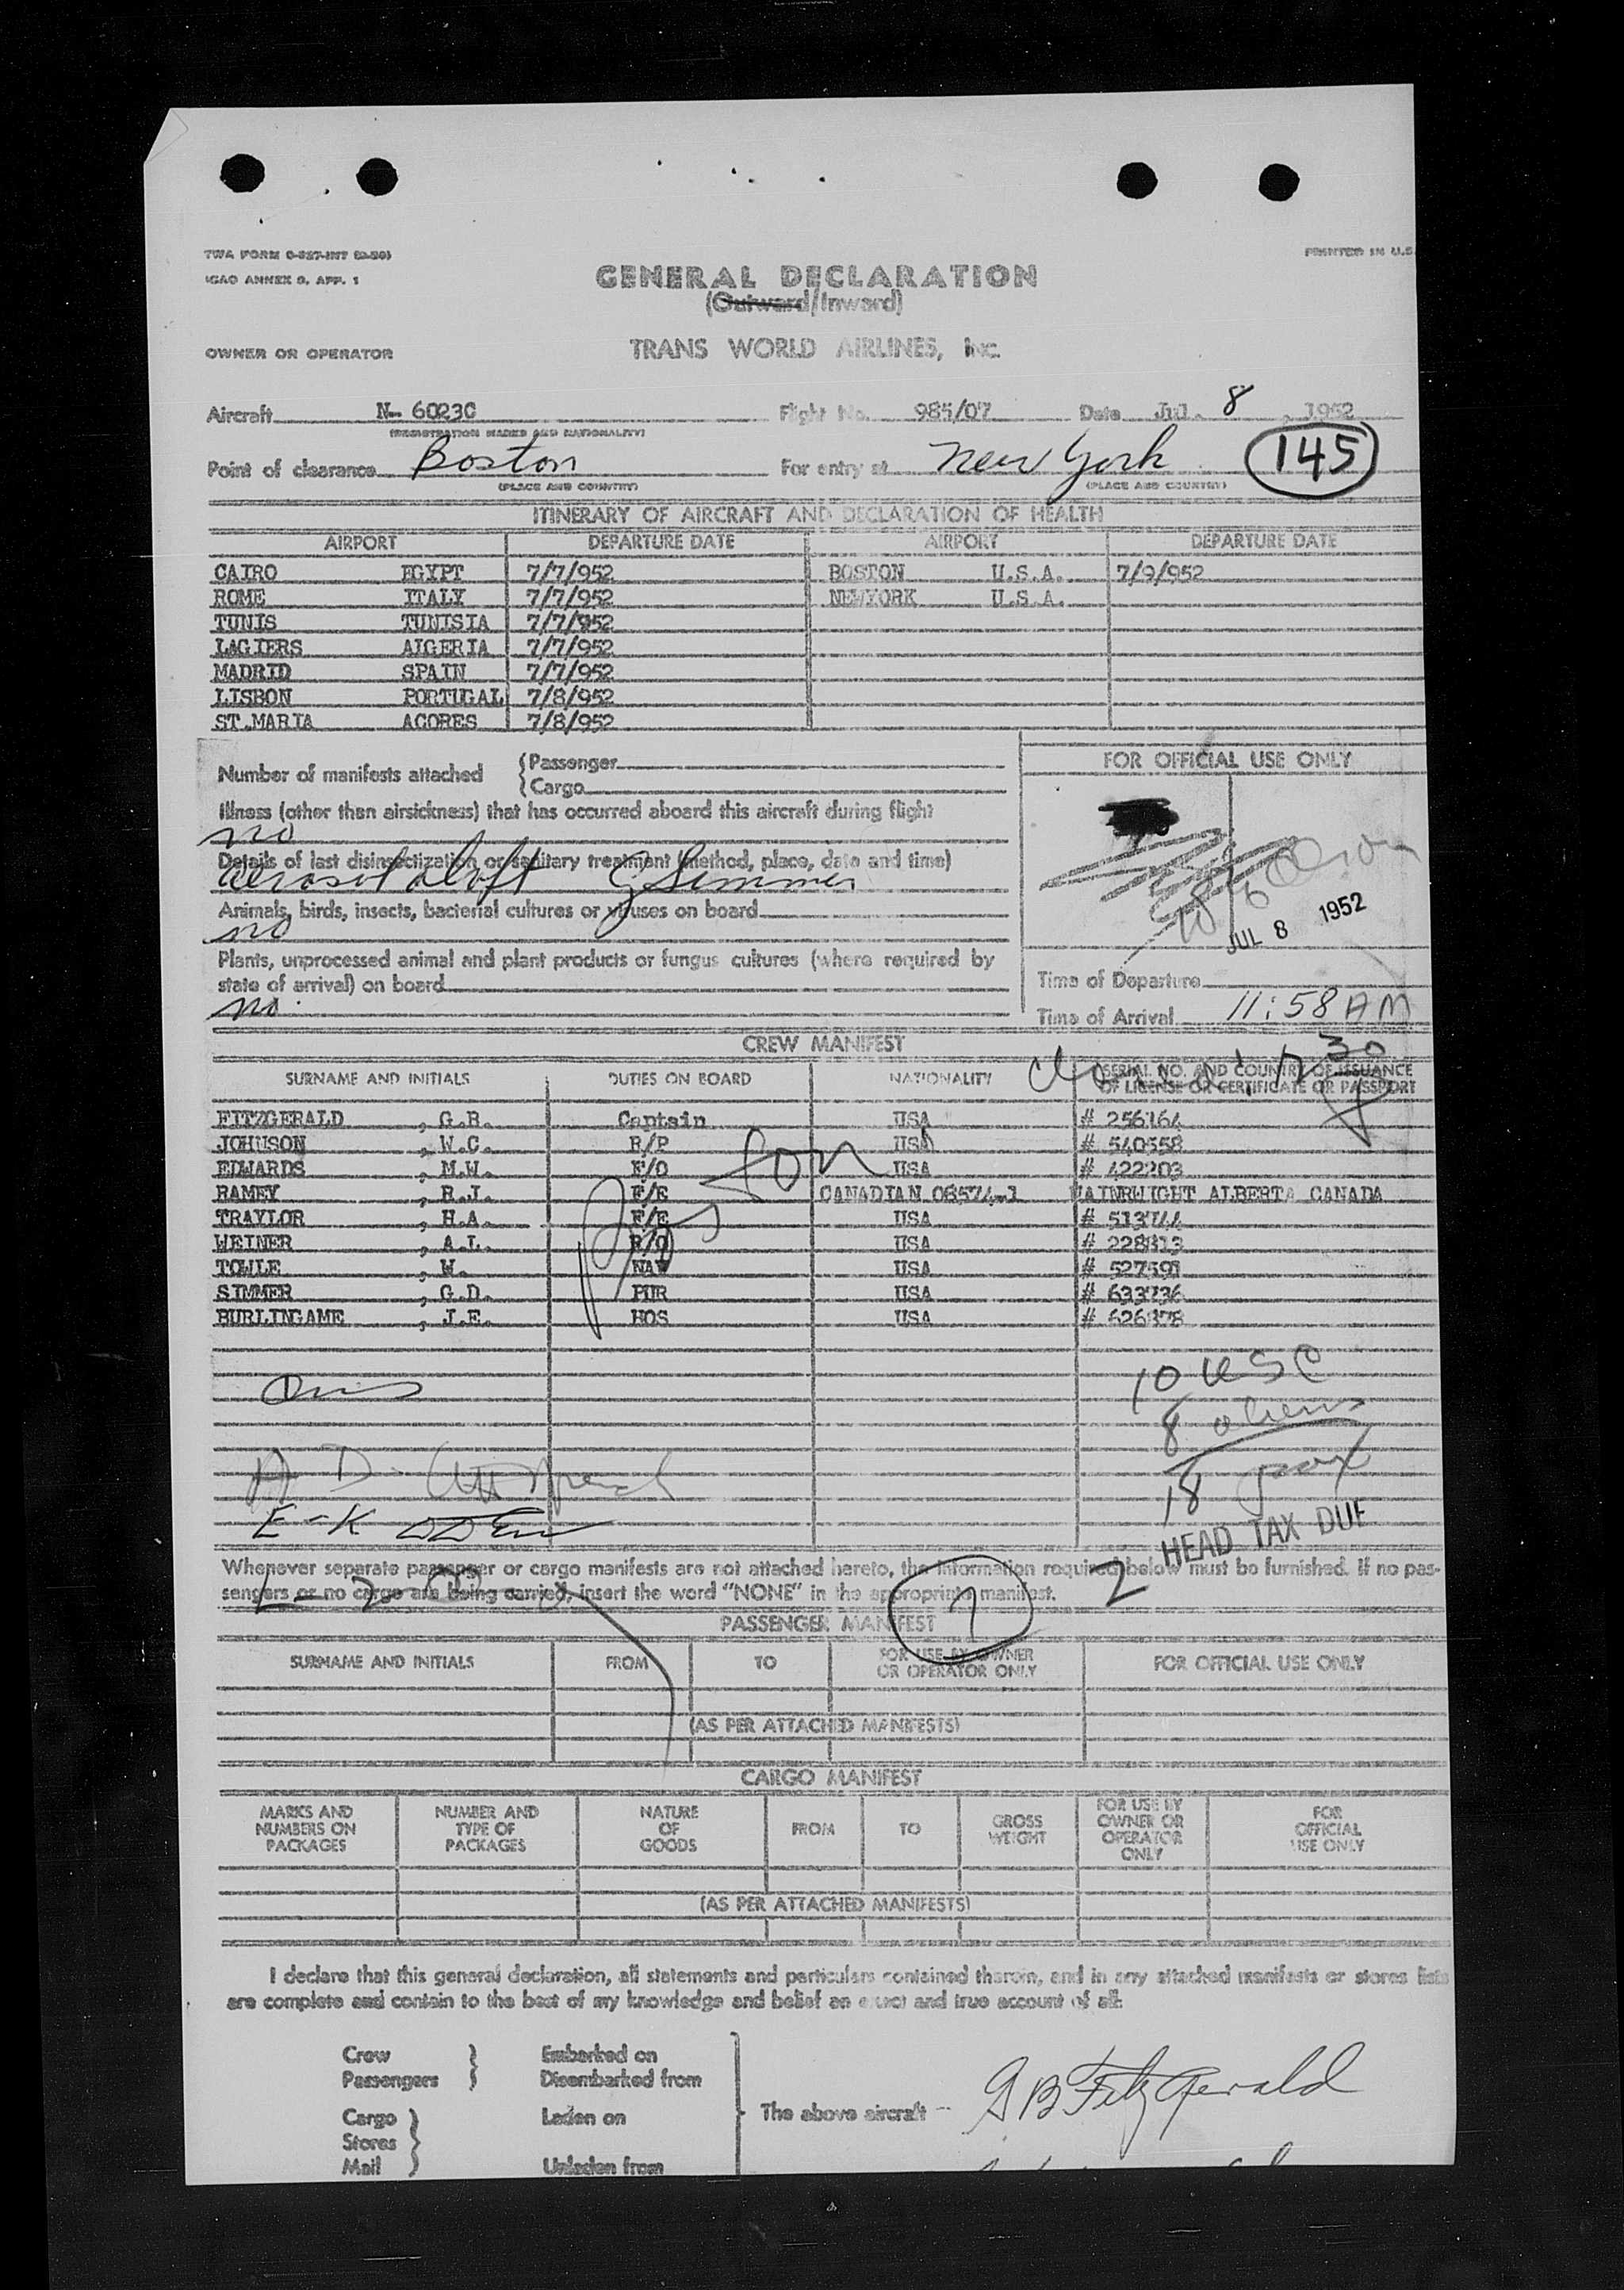 TWA FORM 0-827-INT
ICAO ANNEX 9, APP. 1
PRINTED IN U.S.
GENERAL DECLARATION
(Outward/Inward)
OWNER OR OPERATOR TRANS WORLD AIRLINES, Inc.
Aircraft N- 6023C Flight No. 985/07 Date Jul. 8, 1952
(REGISTRATION MARKS AND NATIONALITY)
Point of clearance Boston For entry at New York 145
(PLACE AND COUNTRY) (PLACE AND COUNTRY)
ITINERARY OF AIRCRAFT AND DECLARATION OF HEALTH
AIRPORT DEPARTURE DATE AIRPORT DEPARTURE DATE
CAIRO EGYPT 7/7/952 BOSTON U.S.A. 7/9/952
ROME ITALY 7/7/952 NEWYORK U.S.A.
TUNIS TUNISIA 7/7/952
LAGIERS AIGERIA 7/7/952
MADRID SPAIN 7/7/952
LISBON PORTUGAL 7/8/952
ST.MARIA ACORES 7/8/952
Number of manifests attached {Passenger
{Cargo
FOR OFFICIAL USE ONLY
Illness (other than airsickness) that has occurred aboard this aircraft during flight
no
Details of last disinsectization or sanitary treatment (method, place, date and time)
aerosol aloft G Simmer
Animals, birds, insects, bacterial cultures or viruses on board
no
JUL 8 1952
Plants, unprocessed animal and plant products or fungus cultures (where required by
state of arrival) on board
no.
Time of Departure
Time of Arrival 11:58 AM
CREW MANIFEST
SURNAME AND INITIALS DUTIES ON BOARD NATIONALITY SERIAL NO. AND COUNTRY OF ISSUANCE
OF LICENSE OR CERTIFICATE OR PASSPORT
FITZGERALD , G.B. Captain USA # 256164
JOHNSON , W.C. R/P USA # 540558
EDWARDS , M.W. F/O USA # 422203
RAMEY , R.J. F/E CANADIAN 08574-1 WAINRWIGHT ALBERTA CANADA
TRAYLOR , H.A. F/E USA # 513744
WEINER , A.L. R/O USA # 228813
TOWLE , W. NAV USA # 527591
SIMMER , G.D. PUR USA # 633736
BURLINGAME , J.E. HOS USA # 626378
10 USC
8 aliens
18 pax
E-K
HEAD TAX DUE
2
Whenever separate passenger or cargo manifests are not attached hereto, the information required below must be furnished. If no pas-
sengers or no cargo are being carried, insert the word "NONE" in the appropriate manifest.
PASSENGER MANIFEST
SURNAME AND INITIALS FROM TO FOR USE BY OWNER
OR OPERATOR ONLY FOR OFFICIAL USE ONLY
(AS PER ATTACHED MANIFESTS)
CARGO MANIFEST
MARKS AND
NUMBERS ON
PACKAGES
NUMBER AND
TYPE OF
PACKAGES
NATURE
OF
GOODS
FROM
TO
GROSS
WEIGHT
FOR USE BY
OWNER OR
OPERATOR
ONLY
FOR
OFFICIAL
USE ONLY
(AS PER ATTACHED MANIFESTS)
I declare that this general declaration, all statements and particulars contained therein, and in any attached manifests or stores lists
are complete and contain to the best of my knowledge and belief an exact and true account of all:
Crew } Embarked on
Passengers } Disembarked from
Cargo } Laden on The above aircraft -- G B FitzGerald
Stores
Mail } Unladen from